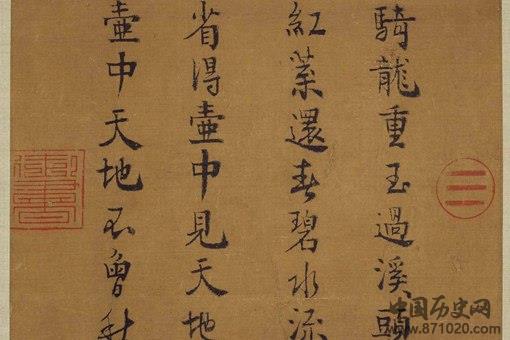 騎龍重玉過溪頭
紅葉還春碧水流
省得壺中見天地
壺中天地不曾秋
中国历史网
www.871020.com